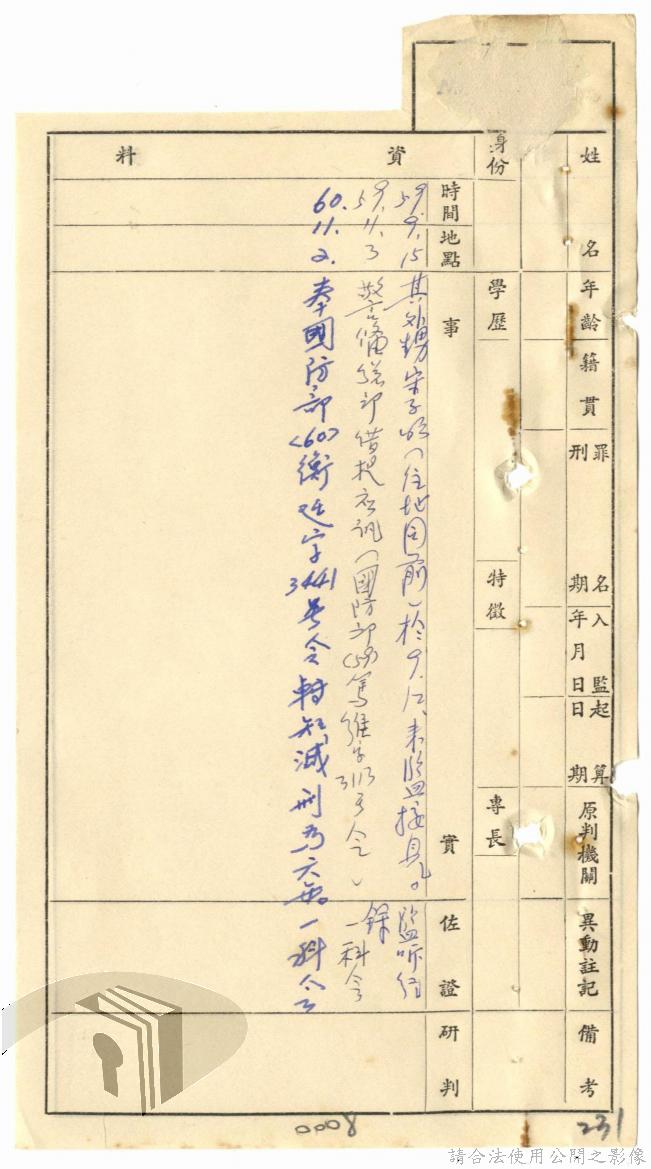 姓名
年齡
籍貫
罪名
刑期
入監年月日
起算日期
原判機關
異動註記
備考
身份
學歷
特徵
專長
資料
時間
地點
事實
佐證
研判
59.9.15
其外甥宋子 (住地同前) 於9.12.來監接見。
監
59.11.3
警備總部借提應訊(國防部(59)篤維字3113号令)
一科令
60.11.2.
奉國防部(60)衡廷字3441号令轉知減刑為六
一科令
0008
231
請合法使用公開之影像